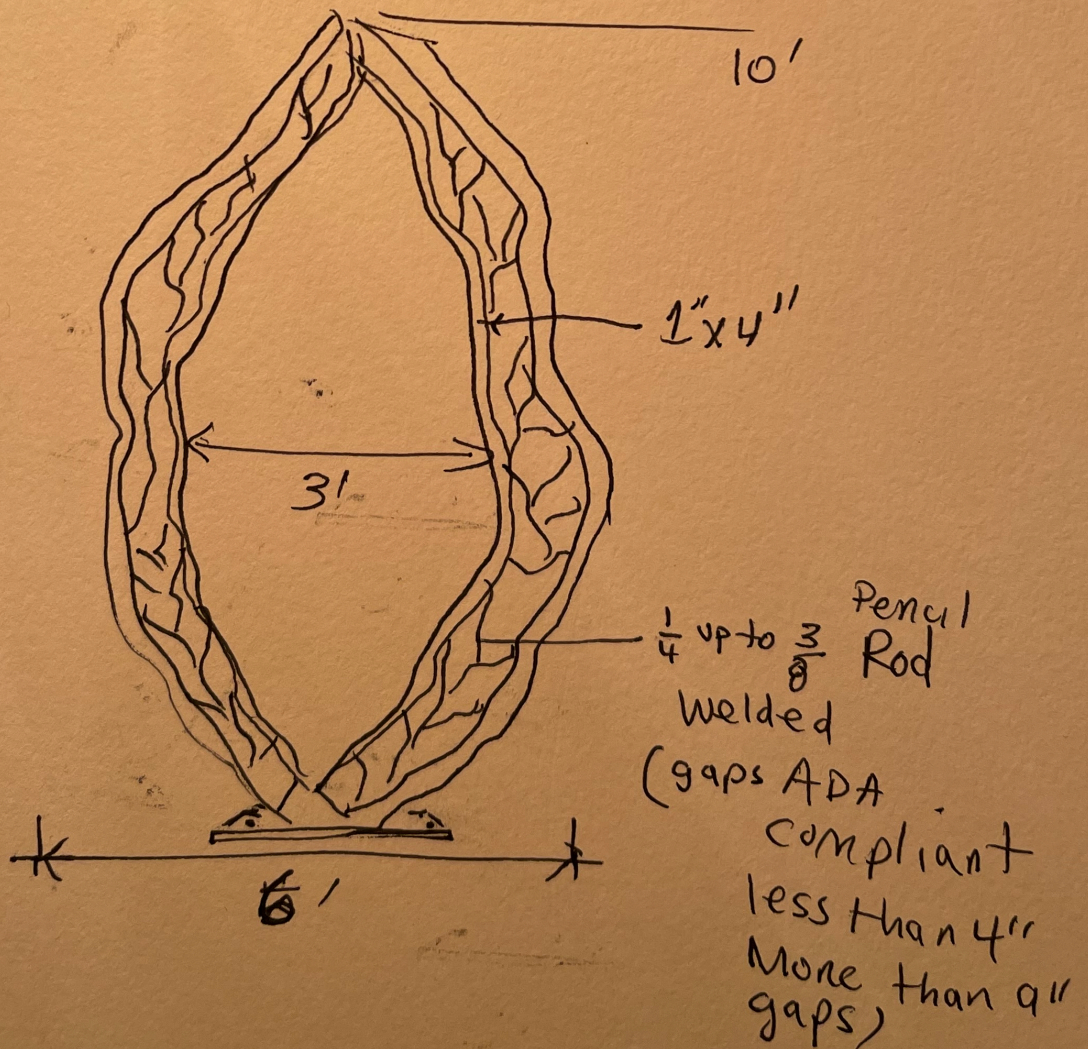 10'
1"x4"
3'
1/4 up to 3/8 Pencil Rod
welded
(gaps ADA
compliant
less than 4"
More than 9"
gaps)
6'